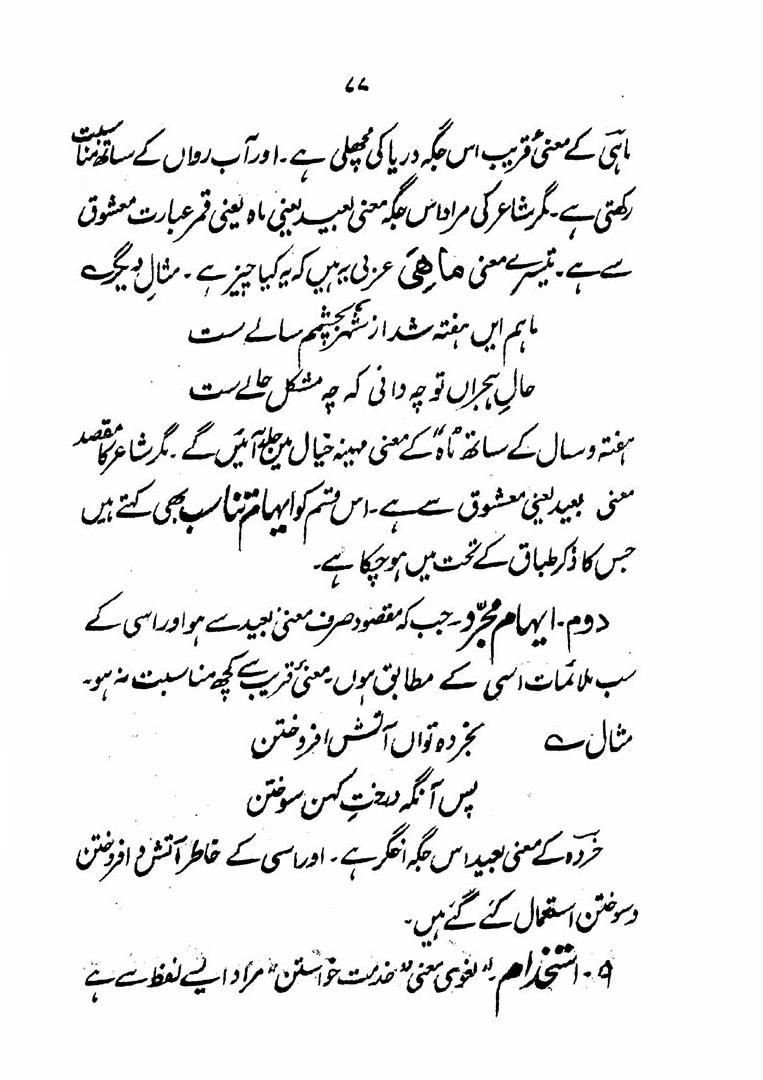 ۷۷
ماہی کے معنیٔ قریب اس جگہ دریا کی مچھلی ہے۔ اور آب رواں کے ساتھ مناسبت
رکھتی ہے۔ مگر شاعر کی مراد اس جگہ معنی بعید یعنی ماہ یعنی قمر عبارت معشوق
سے ہے۔ تیسرے معنی ماھی عربی یہ ہیں کہ یہ کیا چیز ہے۔ مثالِ دیگر ؎
ماہم ایں ہفتہ شد از شہر بچشمم سالے ست
حالِ ہجراں تو چہ دانی کہ چہ مشکل حالے ست
ہفتہ و سال کے ساتھ "ماہ" کے معنی مہینہ خیال میں جلد آئیں گے۔ مگر شاعر کا مقصد
معنی بعید یعنی معشوق سے ہے۔ اس قسم کو ایہام تناسب بھی کہتے ہیں
جس کا ذکر طباق کے تحت میں ہو چکا ہے۔
دوم۔ ایہام مجرّد۔ جب کہ مقصود صرف معنیٔ بعید سے ہو اور اسی کے
سب ملائمات اسی کے مطابق ہوں۔ معنیٔ قریب سے کچھ مناسبت نہ ہو۔
مثال ؎ بخردہ تواں آتش افروختن
پس آنگہ درختِ کہن سوختن
خردہ کے معنی بعید اس جگہ اخگر ہے۔ اور اسی کے خاطر آتش و افروختن
و سوختن استعمال کئے گئے ہیں۔
۹۔ استخدام۔ "لغوی معنی" "خدمت خواستن" مراد ایسے لفظ سے ہے